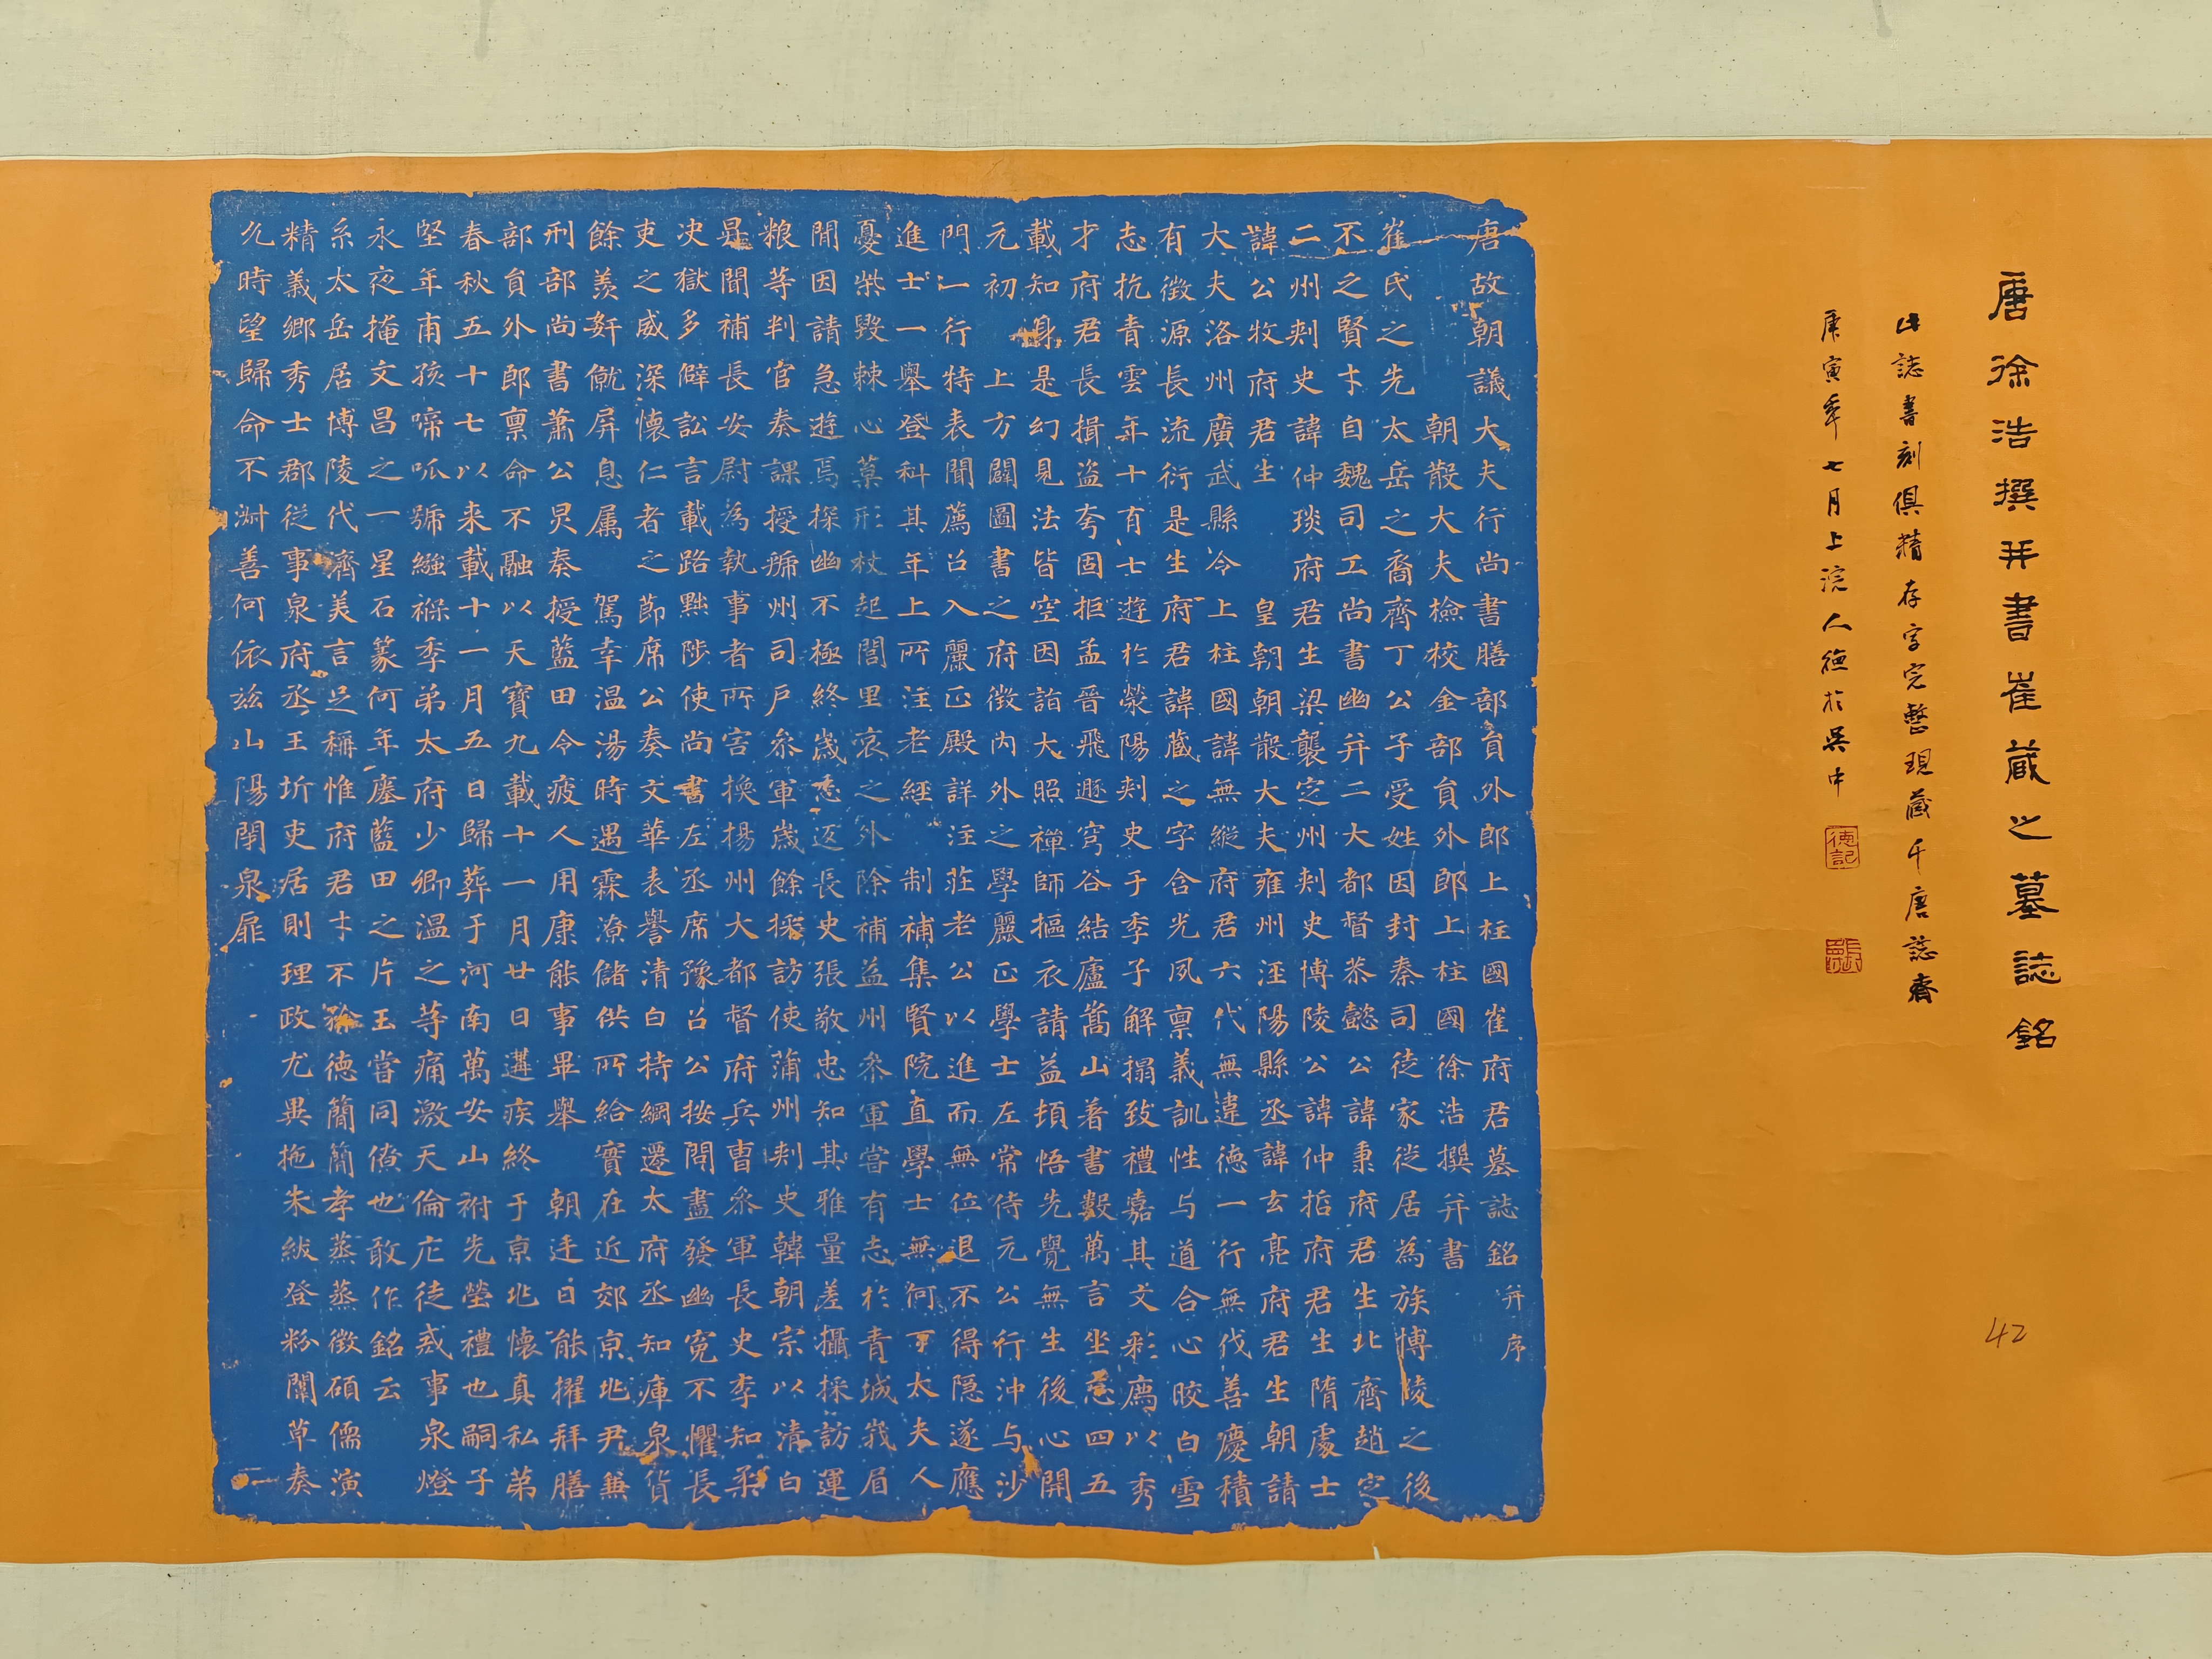 唐徐浩撰并書崔藏之墓誌銘
此誌書刻俱精存字完整現藏千唐誌齋
庚寅年七月上浣人德於吳中
德記
42
唐故朝議大夫行尚書膳部員外郎上柱國崔府君墓誌銘并序
朝散大夫檢校金部員外郎上柱國徐浩撰并書
崔氏之先太岳之裔齊丁公子受姓因封秦司徒家從居為族博陵之後
不之賢才自魏司工尚書幽并二大都督恭懿公諱秉府君生北齊趙定
二州刺史諱仲琰府君生梁襲定州刺史博陵公諱仲哲府君生隋處士
諱公牧府君生皇朝朝散大夫雍州涇陽縣丞諱玄亮府君生朝請
大夫洛州廣武縣令上柱國諱無縱府君六代無違德一行無伐善慶積
有徵源長流衍是生府君諱藏之字含光夙禀義訓性与道合心皎白雪
志抗青雲年十有士遊於滎陽刺史于季子解榻致禮嘉其文彩廌以秀
才府君長揖盜夸固拒孟晉飛遯穹谷結廬嵩山著書數萬言坐忘四五
載知身是幻見法皆空因詣大照禪師摳衣請益頓悟先覺無生後心開
元初上方闢圖書之府徵內外之學麗正學士左常侍元公行沖与沙
門一行特表聞薦召入麗正殿詳注莊老公以進而無位退不得隱遂應
進士一舉登科其年上所注老經制補集賢院直學士無何丁太夫人
憂柴毀棘心藁形杖起閭里哀之外除補益州參軍嘗有志於青城峩眉
閒因請急遊焉探幽不極終歲忘返長史張敬忠知其雅量差攝採訪運
粮等判官奏課授虢州司戶參軍歲餘採訪使蒲州刺史韓朝宗以清白
昇聞補長安尉為執事者所害換揚州大都督府兵曹參軍長史李知柔
决獄多僻訟言載路黜陟使尚書左丞席豫召公按問盡發幽冤不懼長
吏之威深懷仁者之節席公奏文華表譽清白持綱遷太府丞知庫泉貨
餘羨姧僦屏息属駕幸温湯時遇霖潦儲供所給實在近郊京兆尹兼
刑部尚書蕭公炅奏授藍田令疲人用康能事畢舉朝迁曰能擢拜膳
部員外郎禀命不融以天寶九載十一月廿日遘疾終于京兆懷真私第
春秋五十七以来載十一月五日歸葬于河南萬安山祔先塋禮也嗣子
堅年甫孩啼呱號繦褓季弟太府少卿温之等痛激天倫庀徒戒事泉燈
永夜掩文昌之一星石篆何年塵藍田之片玉嘗同僚也敢作銘云
系太岳居博陵代濟美言足稱惟府君才不狳德簡簡孝蒸蒸徵碩儒演
精義鄉秀士郡從事泉府丞王圻吏居則理政尤異拖朱紱登粉闈草奏
久時望歸命不淑善何依兹山陽閉泉扉